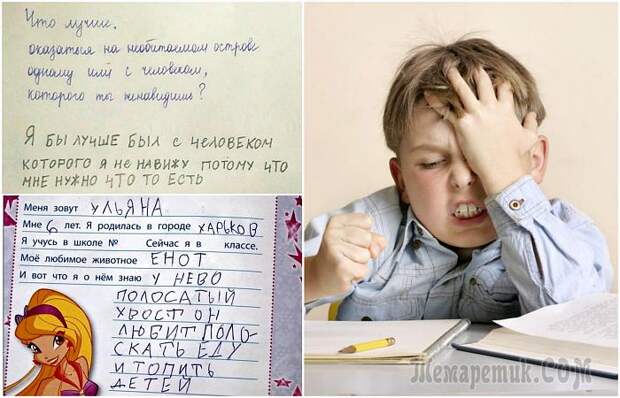 Что лучше.
оказаться на необитаемом острове
одному или с человеком,
которого ты ненавидишь?
Я БЫ ЛУЧШЕ БЫЛ С ЧЕЛОВЕКОМ
КОТОРОГО Я НЕ НАВИЖУ ПОТОМУ ЧТО
МНЕ НУЖНО ЧТО ТО ЕСТЬ
Меня зовут УЛЬЯНА
Мне 6 лет. Я родилась в городе ХАРЬКОВ
Я учусь в школе № Сейчас я в классе.
Моё любимое животное ЕНОТ
И вот что я о нём знаю У НЕВО
ПОЛОСАТЫЙ
ХВОСТ ОН
ЛЮБИТ ПОЛО-
СКАТЬ ЕДУ
И ТОПИТЬ
ДЕТЕЙ
Темаретик.COM